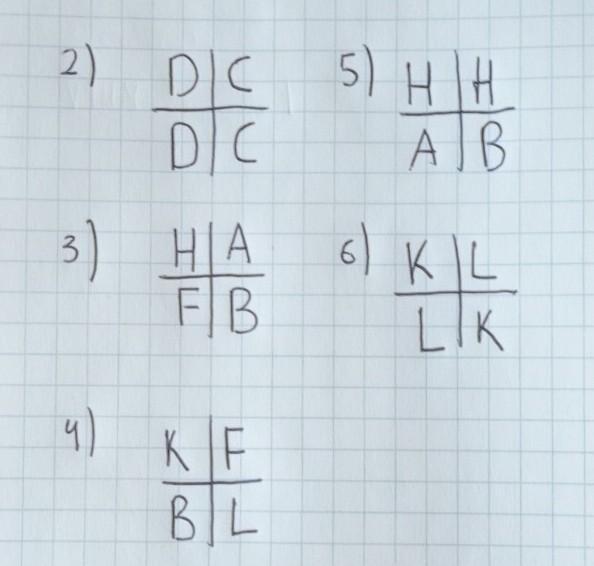 2) D C
D C
3) H A
F B
4) K F
B L
5) H H
A B
6) K L
L K